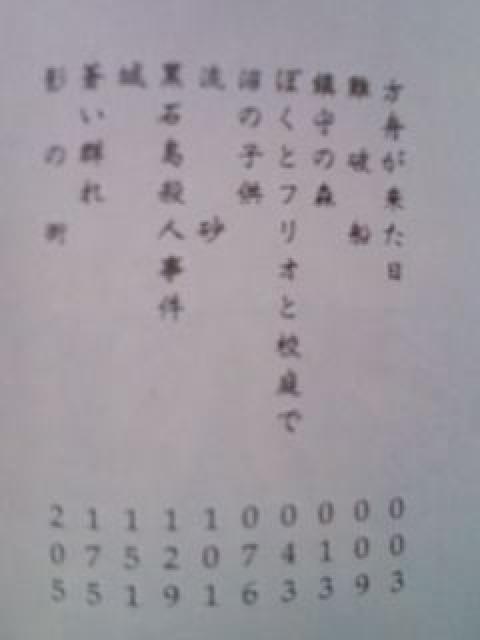 方舟が来た日 003
難破船 009
鎮守の森 013
ぼくとフリオと校庭で 043
沼の子供 076
流砂 101
黒石島殺人事件 129
城 151
蒼い群れ 175
影の街 205